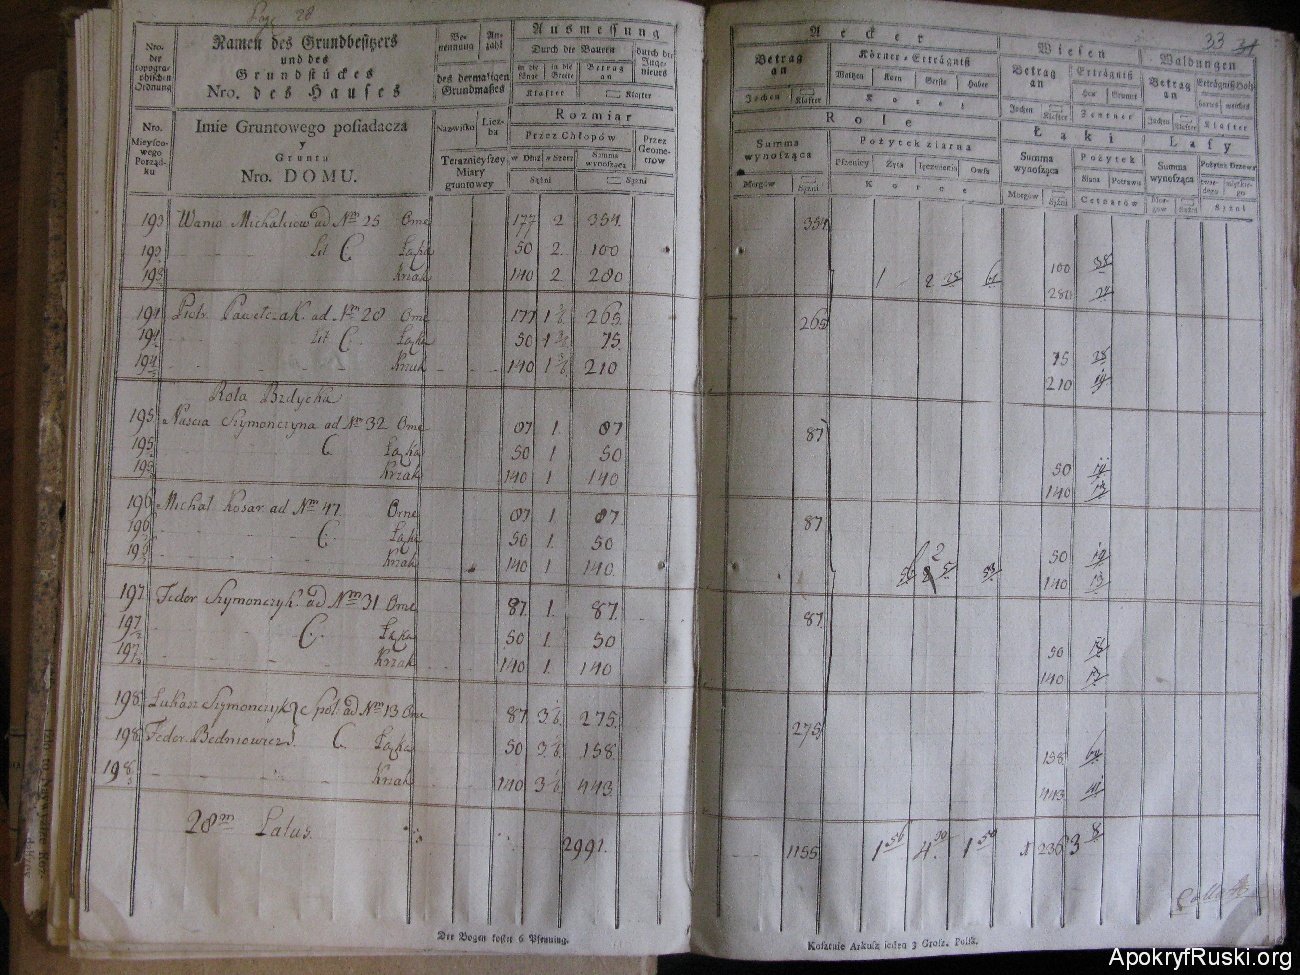 Page 28
Nro. der topographischen Ordnung
Namen des Grundbesitzers
und des
Grundstückes
Nro. des Hauses
Benennung Anzahl
des dermaligen Grundmaßes
Ausmessung
Durch die Bauern
durch die Ingenieurs
in die Länge in die Breite Betrag an
Klafter Klafter
Nro. Mieyscowego Porządku
Imie Gruntowego posiadacza
y
Gruntu
Nro. DOMU.
Nazwisko Liczba
Terazniejszey Miary gruntowey
Rozmiar
Przez Chłopów
Przez Geometrow
w Dłuż w Szerz Summa wynosząca
Sążni Sążni
193 Wanio Michalciow ad Nm 25 Orne 177 2 354.
193 Lit C Łąka 50 2. 100
193 Krzak 140 2 280
194 Piotr Pawelczak ad Nm 28 Orne 177 1 265.
194 Lit C Łąka 50 1 75.
194 Krzak 140 1 210
Rola Brdycka
195 Nascia Szymonczyna ad Nm 32 Orne 87 1. 87
195 C Łąka 50 1 50
195 Krzak 140 1 140
196 Michał Kosar ad Nm 47 Orne 87 1. 87
196 C. Łąka 50 1. 50
196 Krzak 140 1 140.
197 Fedor Szymonczyk ad Nm 31 Orne 87. 1. 87.
197 C. Łąka 50 1. 50
197 Krzak 140 1 140
198 Łukasz Szymonczyk Spół. ad Nm 13 Orne 87. 3 275.
198 Fedor C. Łąka 50 3 158.
198 Krzak 140 3 443.
28m Latus. 2991.
Der Bogen kostet 6 Pfenning.
33
Aecker
Wiesen
Waldungen
Betrag an
Körner-Erträgniß
Waitzen Korn Gerste Haber
Jochen Klafter
Koretz
Betrag an
Erträgniß
Heu Grumet
Jochen Klafter
Zentner
Betrag an
Erträgniß Holz
hartes weiches
Jochen Klafter
Klafter
Role
Łąki
Lasy
Summa wynosząca
Pożytek ziarna
Pszenicy Żyta Jęczmienia Owsa
Morgow Sążni
Korce
Summa wynosząca
Pożytek
Siana Potrawu
Morgow Sążni
Cetnarów
Summa wynosząca
Pożytek Drzewa
twardego miękkiego
Morgow Sążni
Sążni
354.
1 2 100 38
280
265
75 25
210
87
50
140 13
87
50
140 13
87.
50
140
275
158
443
1155. 1 56 4 30 1 50 1236 3 8
Kosztuie Arkusz ieden 3 Grosz. Polsk.
ApokryfRuski.org